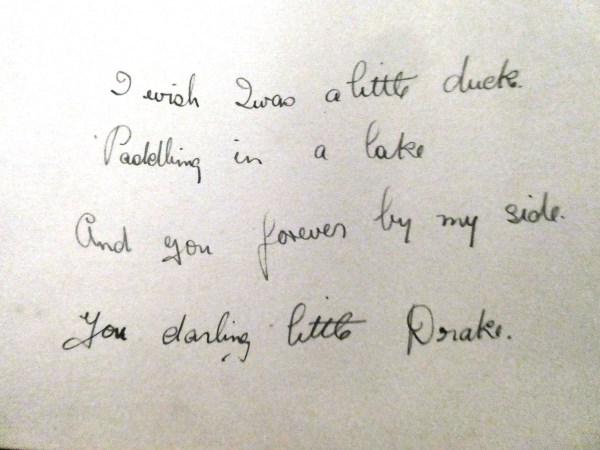 I wish I was a little duck.
Paddling in a lake
And you forever by my side.
You darling little Drake.